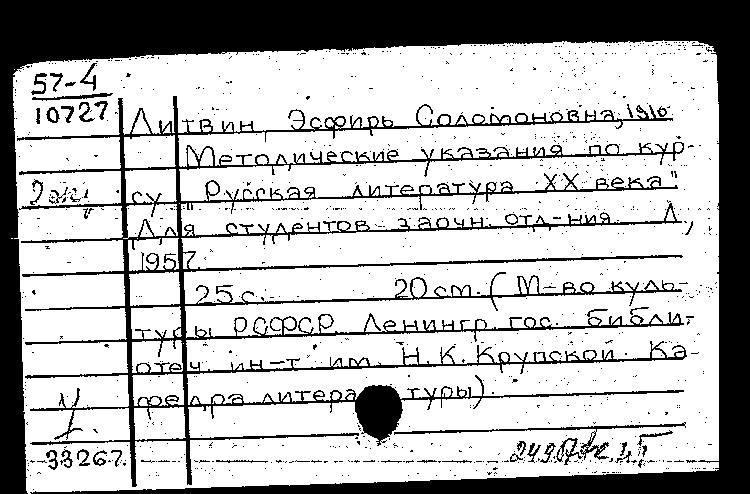 57-4
10727
Литвин, Эсфирь Соломоновна, 1910
Методические указания по кур-
2 экз су "Русская литература XX века".
Для студентов заочн. отд-ния. Л.,
1957.
25 с. 20 см. (М-во куль-
туры РСФСР. Ленингр. гос. библи-
отеч. ин-т им. Н. К. Крупской. Ка-
федра литературы).
33267.